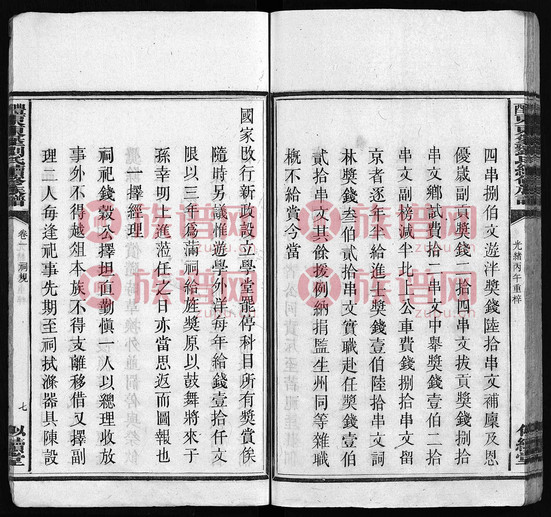 四串捌伯文遊泮獎錢陸拾串文補廩及恩
優歲副貢獎錢一拾四串文拔貢獎錢拾
串文鄉試費拾一串文中舉獎錢壹伯二拾
串文副榜減半北上公車費錢捌拾串文留
京者逐年半給進士獎錢壹伯陸拾串文詞
林獎錢叁伯貳拾串文實職赴任獎錢壹伯
貳拾串文其餘援例納捐監生州同等雜職
概不給賞今當
國家改行新政設立學堂罷停科目所有獎賞俟
隨時另議惟遊學外洋每年給錢壹拾仟文
限以三年爲滿祠給旌獎原以鼓舞將來子
孫幸明上進蒞任之日亦當思返而圖報也
一擇經理
祠祀錢穀永擇坦直勤慎一人以總理收放
事外不得越俎本族不得支離移借又擇副
理二人每逢祀事先期至祠拭滌器具陳設
光緒丙午重梓
祠規
七
族谱网